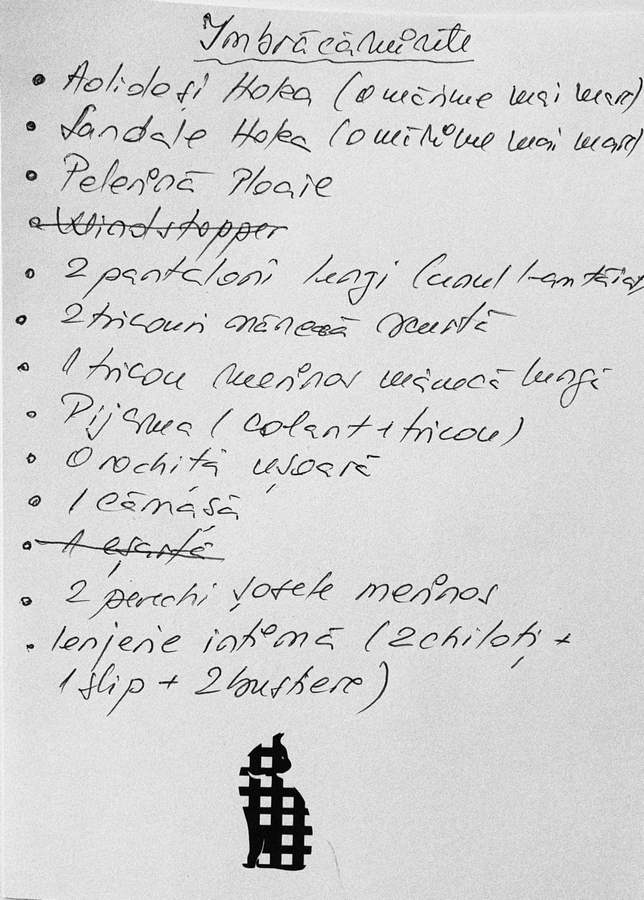 Îmbrăcăminte
• Adidași Hoka (o mărime mai mare)
• Sandale Hoka (o mărime mai mare)
• Pelerină Ploaie
• Windstopper
• 2 pantaloni lungi (unul
• 2 tricouri mânecă scurtă
• 1 tricou merinos mânecă lungă
• Pijama (colant + tricou)
• O rochiță ușoară
• 1 cămașă
• 1 eșarfă
• 2 perechi șosete merinos
• lenjerie intimă (2 chiloți +
1 slip + 2 bustiere)